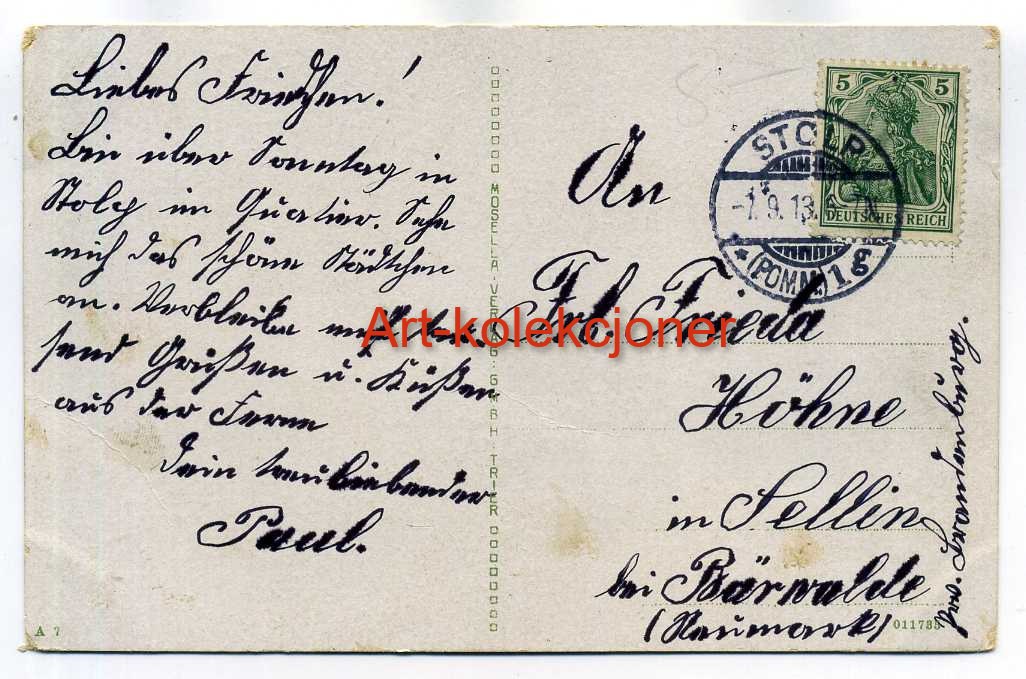 Liebes Friedchen!
Bin über Sonntag in
Stolp im Quatier. Sehe
mich das schöne Städtchen
an. Verbleibe mit
send Grüßen u. Küßen
aus der Ferne
Dein treuliebender
Paul.
MOSELLA-VERLAG: GMBH: TRIER
A 7
5 5
DEUTSCHES REICH
STOLP
-7.9.13.
* (POMM.) 1 g
An
Frl. Frieda
Höhne
in Sellin
bei Bärwalde
(Neumark)
Prov. Brandenburg.
011735
Art-kolekcjoner